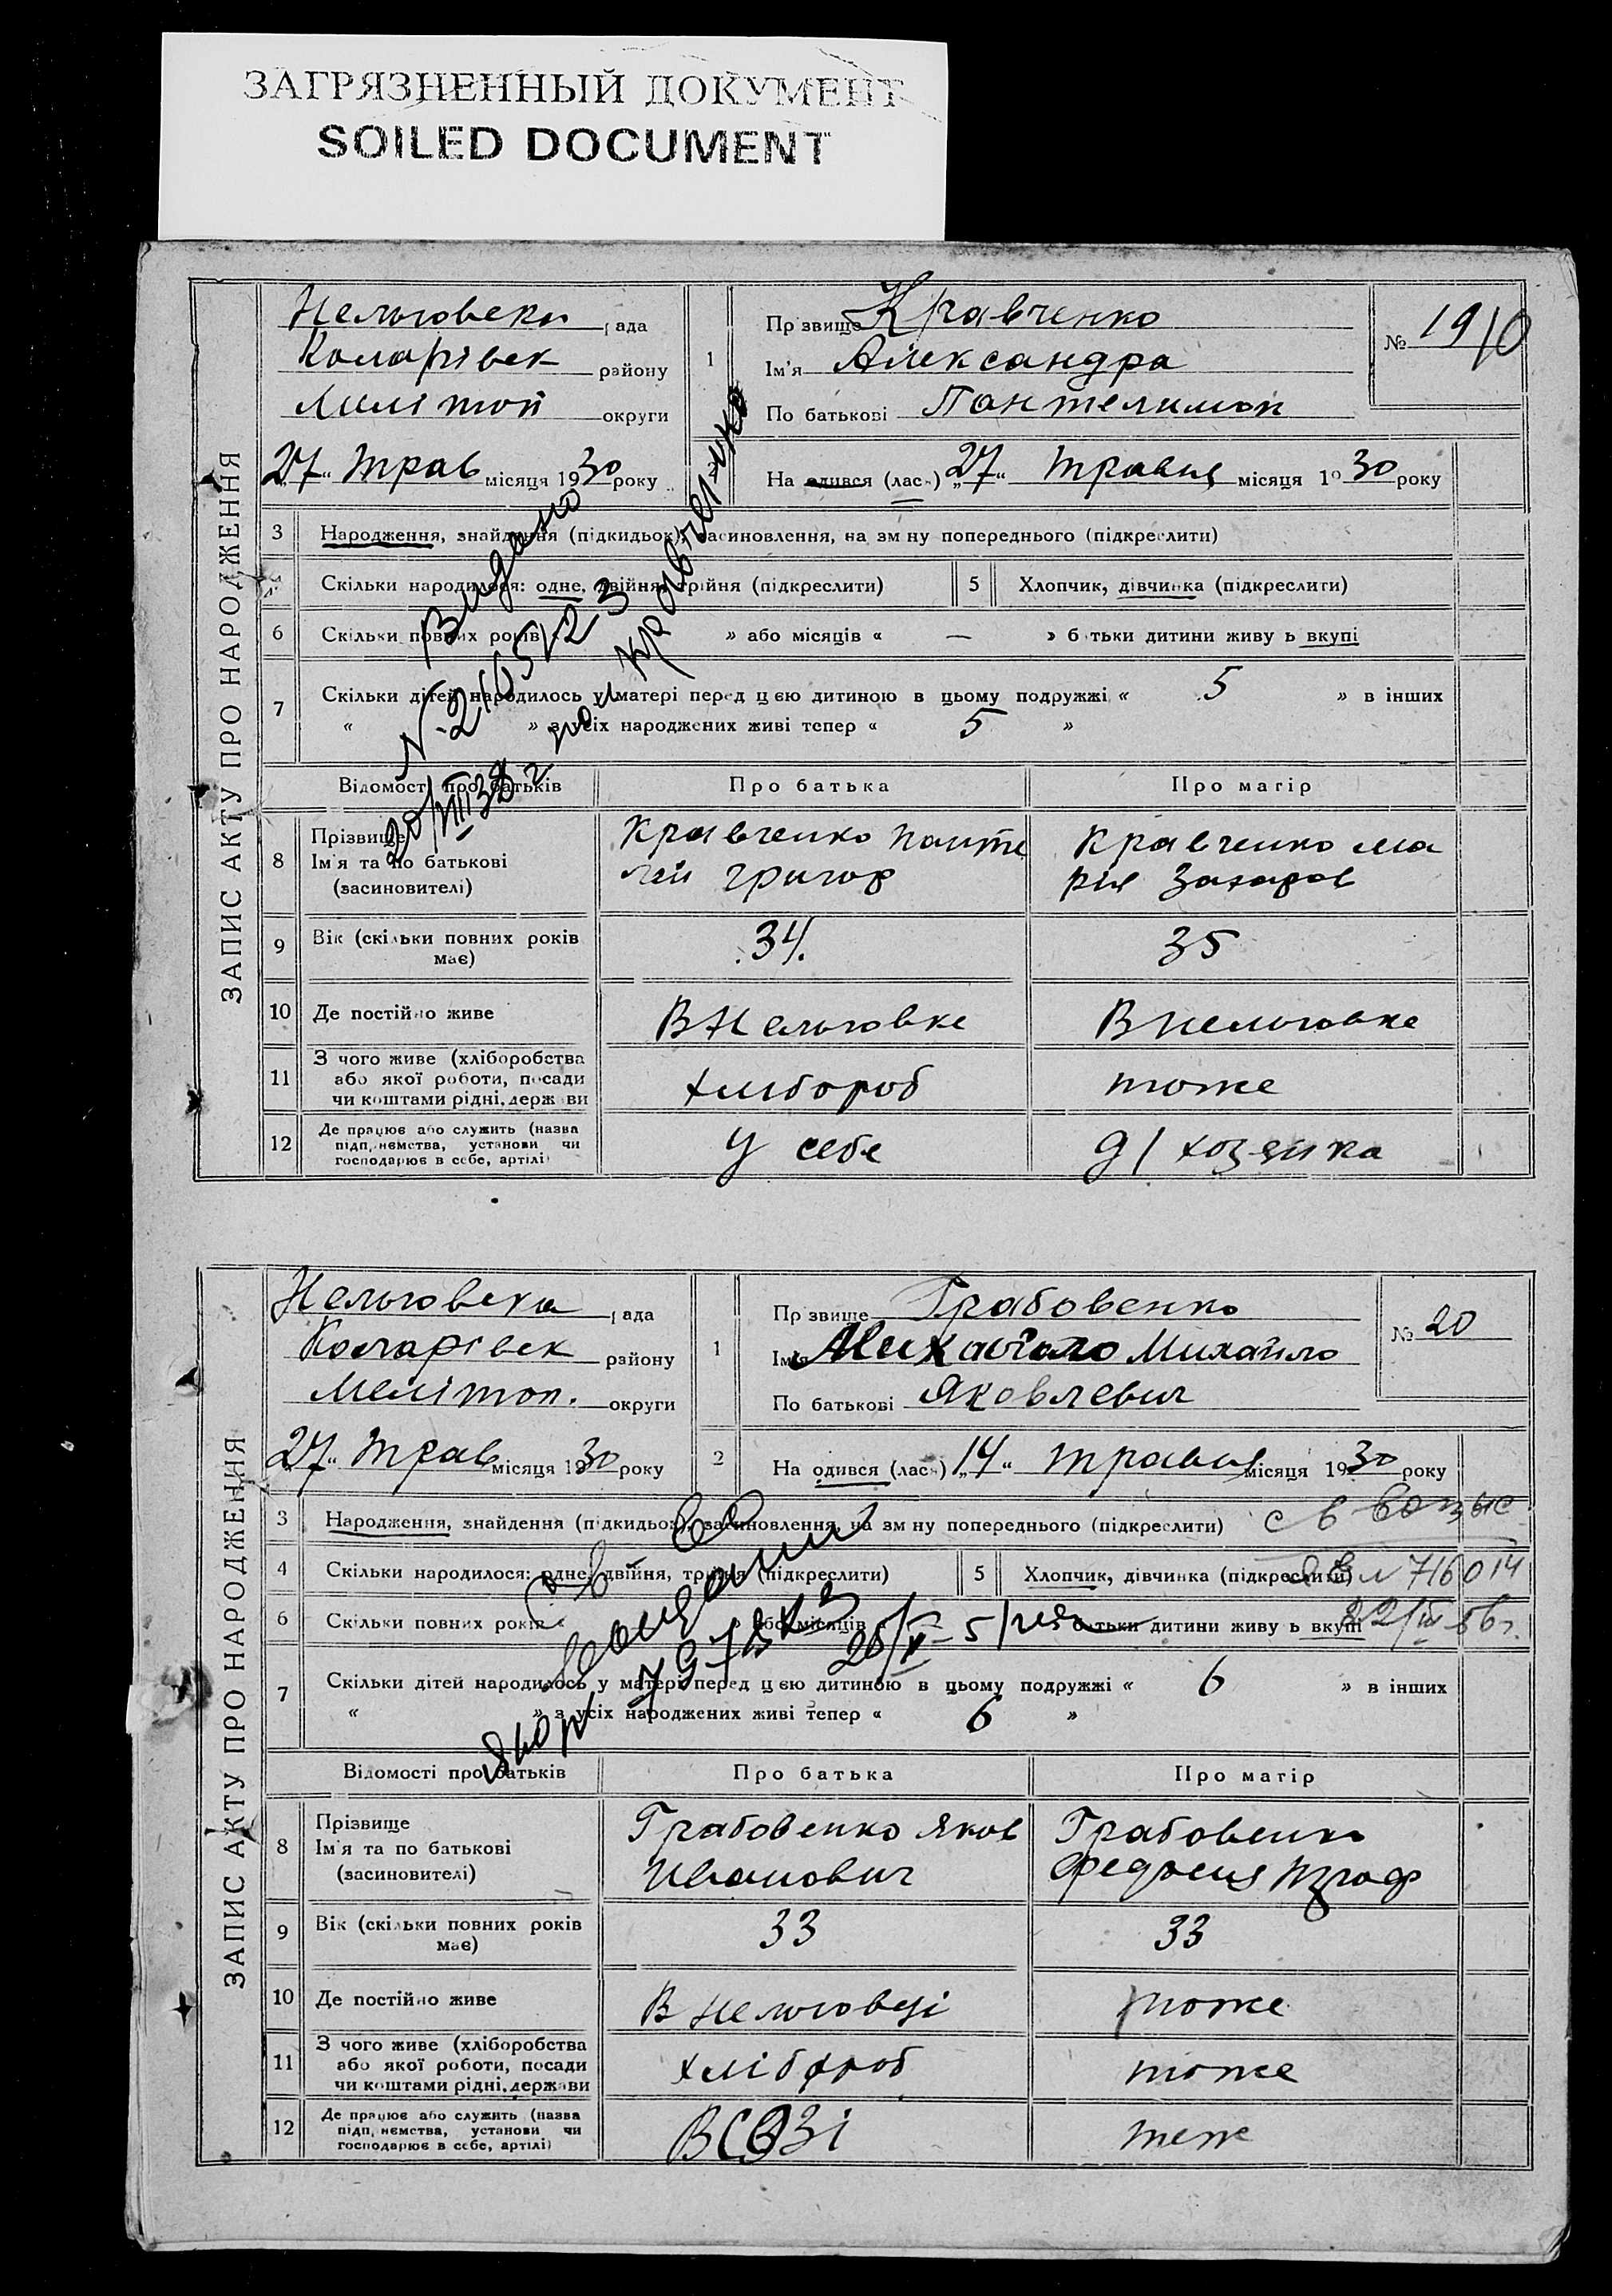 ЗАГРЯЗНЕННЫЙ ДОКУМЕНТ
SOILED DOCUMENT
ЗАПИС АКТУ ПРО НАРОДЖЕННЯ
Нельговска рада
Коларівск району
Мелітоп округи
1 Прізвище Кравченко
Ім'я Александра
По батькові Пантелимон
№ 19
„27“ трав місяця 1930 року
На одився (лась) „27“ травня місяця 1930 року
3 Народження, знайдення (підкидьок), засиновлення, на зміну попереднього (підкреслити)
4 Скільки народилося: одне, двійня, трійня (підкреслити)
5 Хлопчик, дівчинка (підкреслити)
6 Скільки повних років « » або місяців « — » батьки дитини живуть вкупі
7 Скільки дітей народилось у матері перед цією дитиною в цьому подружжі « 5 » в інших
« » з усіх народжених живі тепер « 5 »
Видано
Відомості про батьків Про батька Про матір
8 Прізвище
Ім'я та по батькові
(засиновителі)
Кравченко Панте
лей Григор
Кравченко Ма
рия Захаров
9 Вік (скільки повних років має) 34. 35
10 Де постійно живе В Нельговке В Нельговке
11 З чого живе (хліборобства
або якої роботи, посади
чи коштами рідні, держави
хлибороб тоже
12 Де працює або служить (назва
підприємства, установи чи
господарює в себе, артілі)
У себе д/хозяйка
ЗАПИС АКТУ ПРО НАРОДЖЕННЯ
Нельговска рада
Коларівск району
Мелітоп. округи
1 Прізвище Грабовенко
Ім'я Михайло Михайло
По батькові Яковлевич
№ 20
„27“ трав місяця 1930 року
2 На одився (лась) „14“ травня місяця 1930 року
3 Народження, знайдення (підкидьок), засиновлення, на зміну попереднього (підкреслити)
4 Скільки народилося: одне, двійня, трійня (підкреслити)
5 Хлопчик, дівчинка (підкреслити) № 716014
6 Скільки повних років « або місяців батьки дитини живуть вкупі
7 Скільки дітей народилось у матері перед цією дитиною в цьому подружжі « 6 » в інших
« » з усіх народжених живі тепер « 6 »
Відомості про батьків Про батька Про матір
8 Прізвище
Ім'я та по батькові
(засиновителі)
Грабовенко Яков
Иванович
Грабовенко
Федосия
9 Вік (скільки повних років має) 33 33
10 Де постійно живе В Нельговці тоже
11 З чого живе (хліборобства
або якої роботи, посади
чи коштами рідні, держави
хлібороб тоже
12 Де працює або служить (назва
підприємства, установи чи
господарює в себе, артілі)
В СОЗі теж